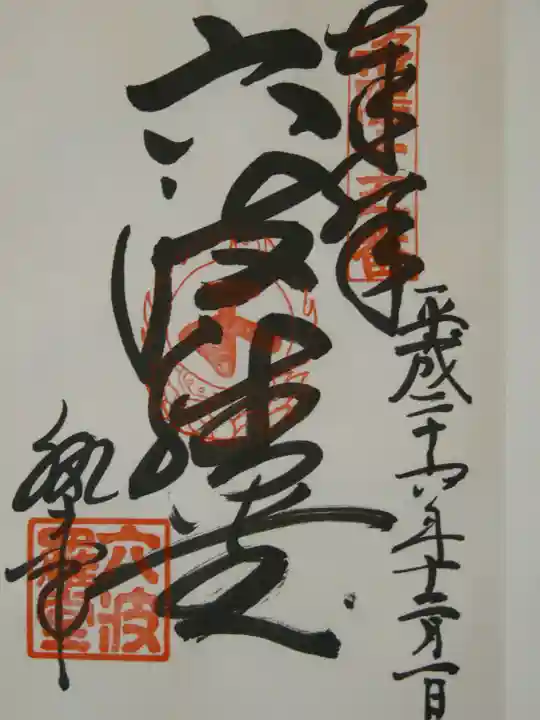 奉拝
平成二十六年十二月一日
六波羅堂
六波
羅堂